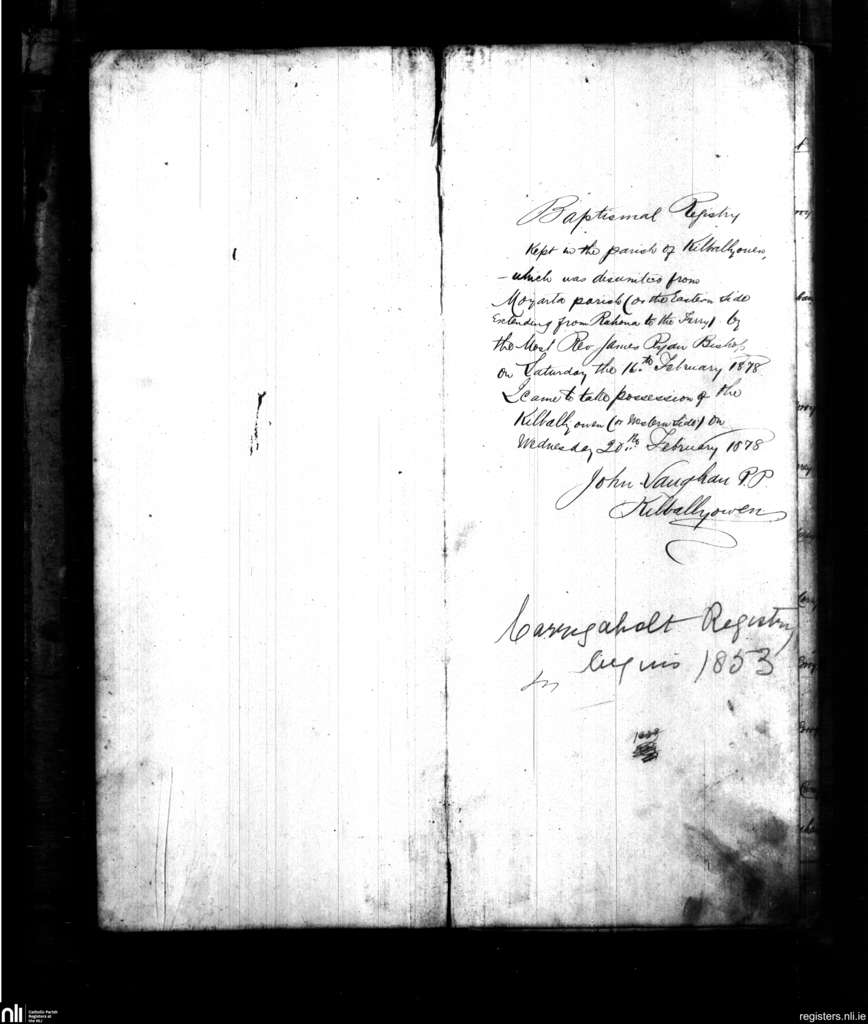 Baptismal Registry
Kept in the parish of Kilballyowen,
- which was disunited from
Moyarta parish (or the Eastern Side
Extending from Rahona to the Ferry) by
the Most Rev James Ryan Bishop
on Saturday the 16.th February 1878
I came to take possession of the
Kilballyowen (or Western Side) on
Wednesday 20th February 1878
John Vaughan P.P.
Kilballyowen
Carrigaholt Registry
begins 1853
in
nli
Catholic Parish
Registers at
the NLI
registers.nli.ie